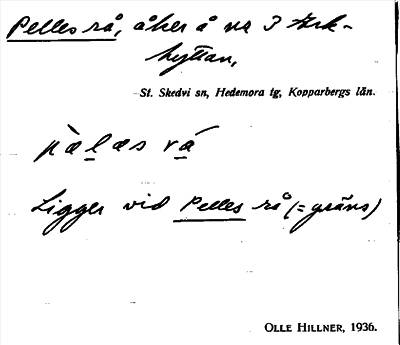 Pelles rå, åker å nr 3 Ark-
hyttan,
St. Skedvi sn, Hedemora tg, Kopparbergs län.
pæ̀læs rá
Ligger vid Pelles rå (= gräns)
OLLE HILLNER, 1936.